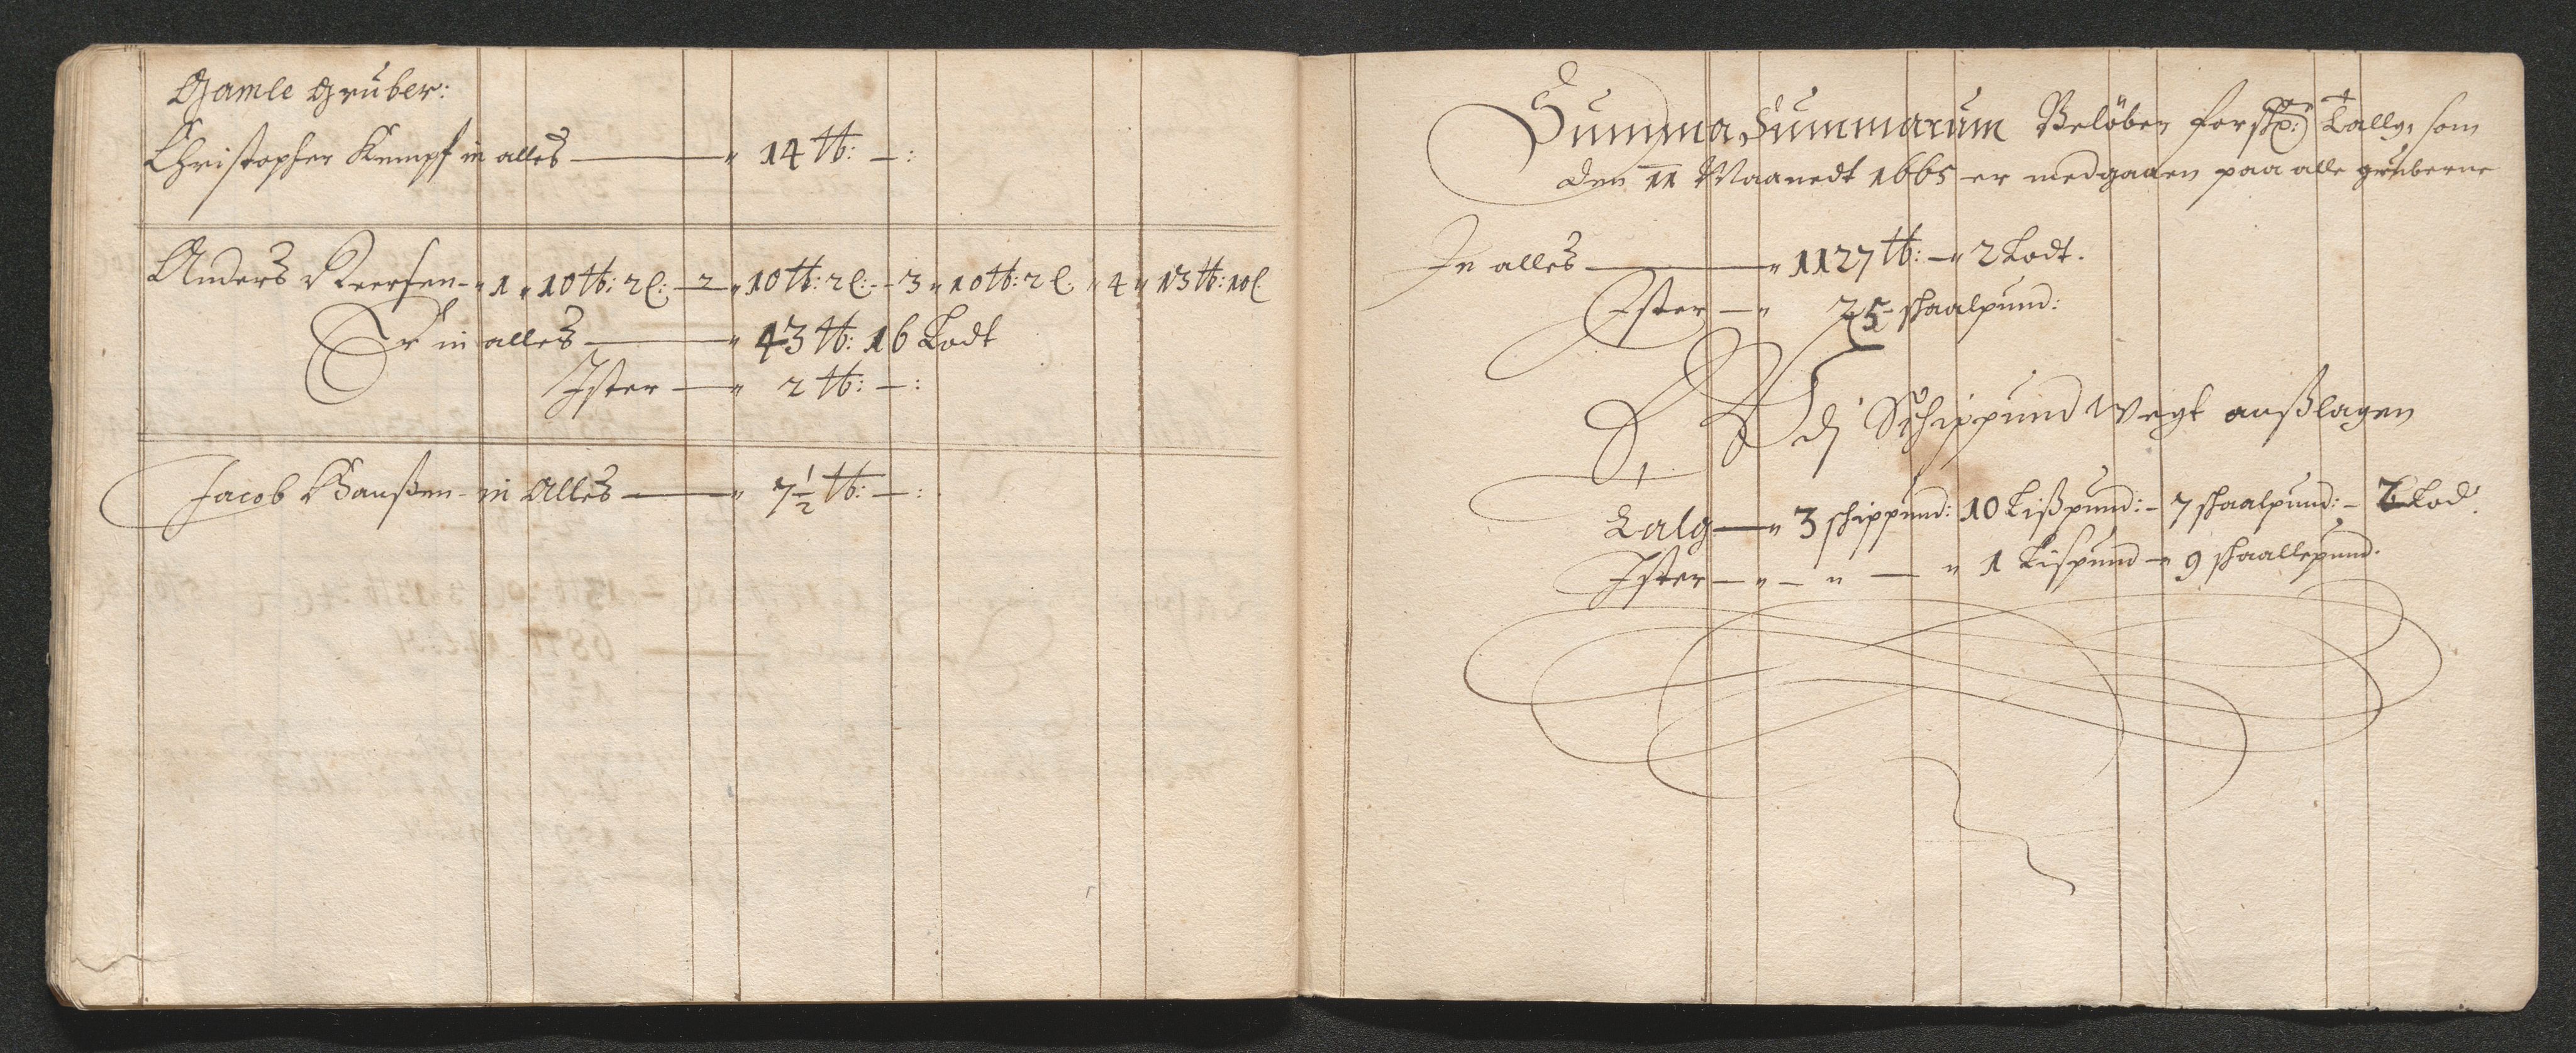 Gamle Gruber:
Christopher Kempf in alles — " 14 ℔: —:
Anders Iversen - " 1 " 10 ℔: 2 l: — 2 " 10 ℔: 2 l: - 3 " 10 ℔: 2 l. " 4 " 13 ℔: 10 l
Er in alles — " 43 ℔: 16 Lodt
Ister — " 2 ℔: —:
Jacob Hanßen - in Alles — " 7 1/2 ℔: —:
Summa Summarum Belöber forsch: Tallg, som
den 11 Maanedt 1665 er medgaaen paa alle gruberne
In alles — " 1127 ℔: — " 2 Lodt.
Ister — " 25 skaalpund:
di Schippund Vegt anßlagen
Talg — " 3 schippund: 10 Lißpund: - 7 skaalpund: - 2 Lod:
Ister — " — " — " 1 Lispund — " 9 skaallepund.